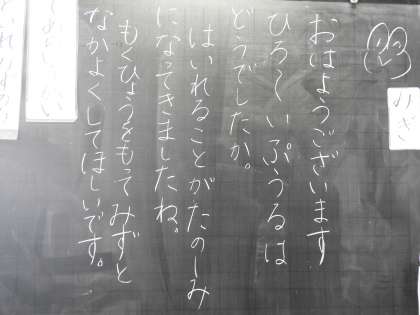 おはようございます
ひろーいぷうるは
どうでしたか。
はいれることがたのしみ
になってきましたね。
もくひょうをもってみずと
なかよくしてほしいです。